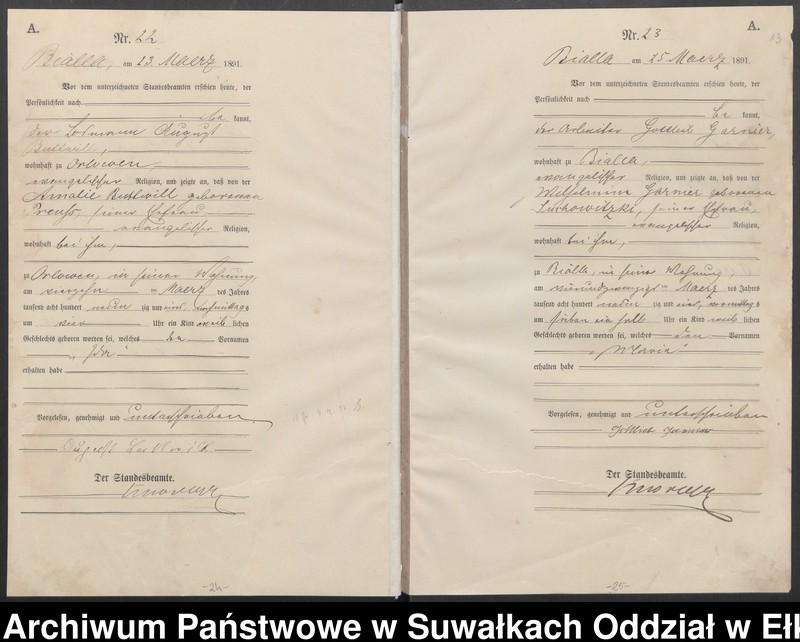 A.
Nr. 22
Bialla, am 23 Maerz 1891.
Vor dem unterzeichneten Standesbeamten erschien heute, der
Persönlichkeit nach
be kannt,
der Losmann August
wohnhaft zu Orlowen,
evangelischer Religion, und zeigte an, daß von der
Amalie geborenen
Preuß, seiner Ehefrau
evangelischer Religion,
wohnhaft bei ihm,
zu Orlowen, in seiner Wohnung,
am vierzehn ten Maerz des Jahres
tausend acht hundert neun zig und eins, nachmittag s
um vier Uhr ein Kind weib lichen
Geschlechts geboren worden sei, welches den Vornamen
"Ida"
erhalten habe
Vorgelesen, genehmigt und unterschrieben
August
Der Standesbeamte.
-24-
A.
Nr. 23
Bialla am 25 Maerz 1891.
Vor dem unterzeichneten Standesbeamten erschien heute, der
Persönlichkeit nach
be kannt,
der Arbeiter Gottlieb Garnier,
wohnhaft zu Bialla,
evangelischer Religion, und zeigte an, daß von der
Wilhelmine Garnier geborenen
seiner Ehefrau,
evangelischer Religion,
wohnhaft bei ihm,
zu Bialla, in seiner Wohnung,
am vierundzwanzigst en Maerz des Jahres
tausend acht hundert neun zig und eins, vormittag s
um sieben ein halb Uhr ein Kind weib lichen
Geschlechts geboren worden sei, welches den Vornamen
"Marie"
erhalten habe
Vorgelesen, genehmigt und unterschrieben
Gottlieb Garnier
Der Standesbeamte.
-25-
Archiwum Państwowe w Suwałkach Oddział w Eł